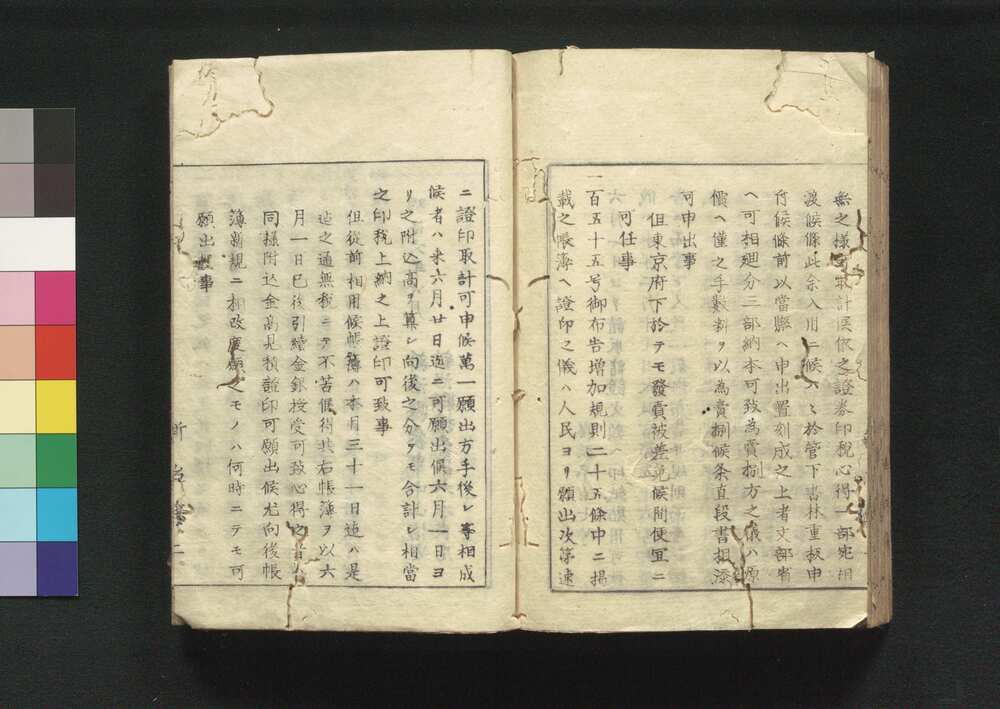 無之様可取計候依之證券印税心得一部宛相
渡候條此余入用ニ候ハヽ於管下書林重板申
付候條前以當縣ヘ申出置刻成之上者文部省
ヘ可相廻分三部納本可致為賣捌方之儀ハ原
價ヘ僅之手數料ヲ以為賣捌候条直段書相添
可申出事
但東京府下於テモ發賣被差免候間便宜ニ
可任事
一百五十五号御布告増加規則二十五條中ニ掲
載之帳簿ヘ證印之儀ハ人民ヨリ願出次第速
ニ證印取計可申候萬一願出方手後レ等相成
候者ハ来六月廿日迄ニ可願出候六月一日ヨ
リ之附込高ヲ算シ向後之分ヲモ合計シ相當
之印税上納之上證印可致事
但従前相用候帳簿ハ本月三十一日迄ハ是
迄之通無税ニテ不苦候得共右帳簿ヲ以六
月一日已後引續金銀授受可致心得之者ハ
同様附込金高見積證印可願出候尤向後帳
簿新規ニ相改度願之モノハ何時ニテモ可
願出事